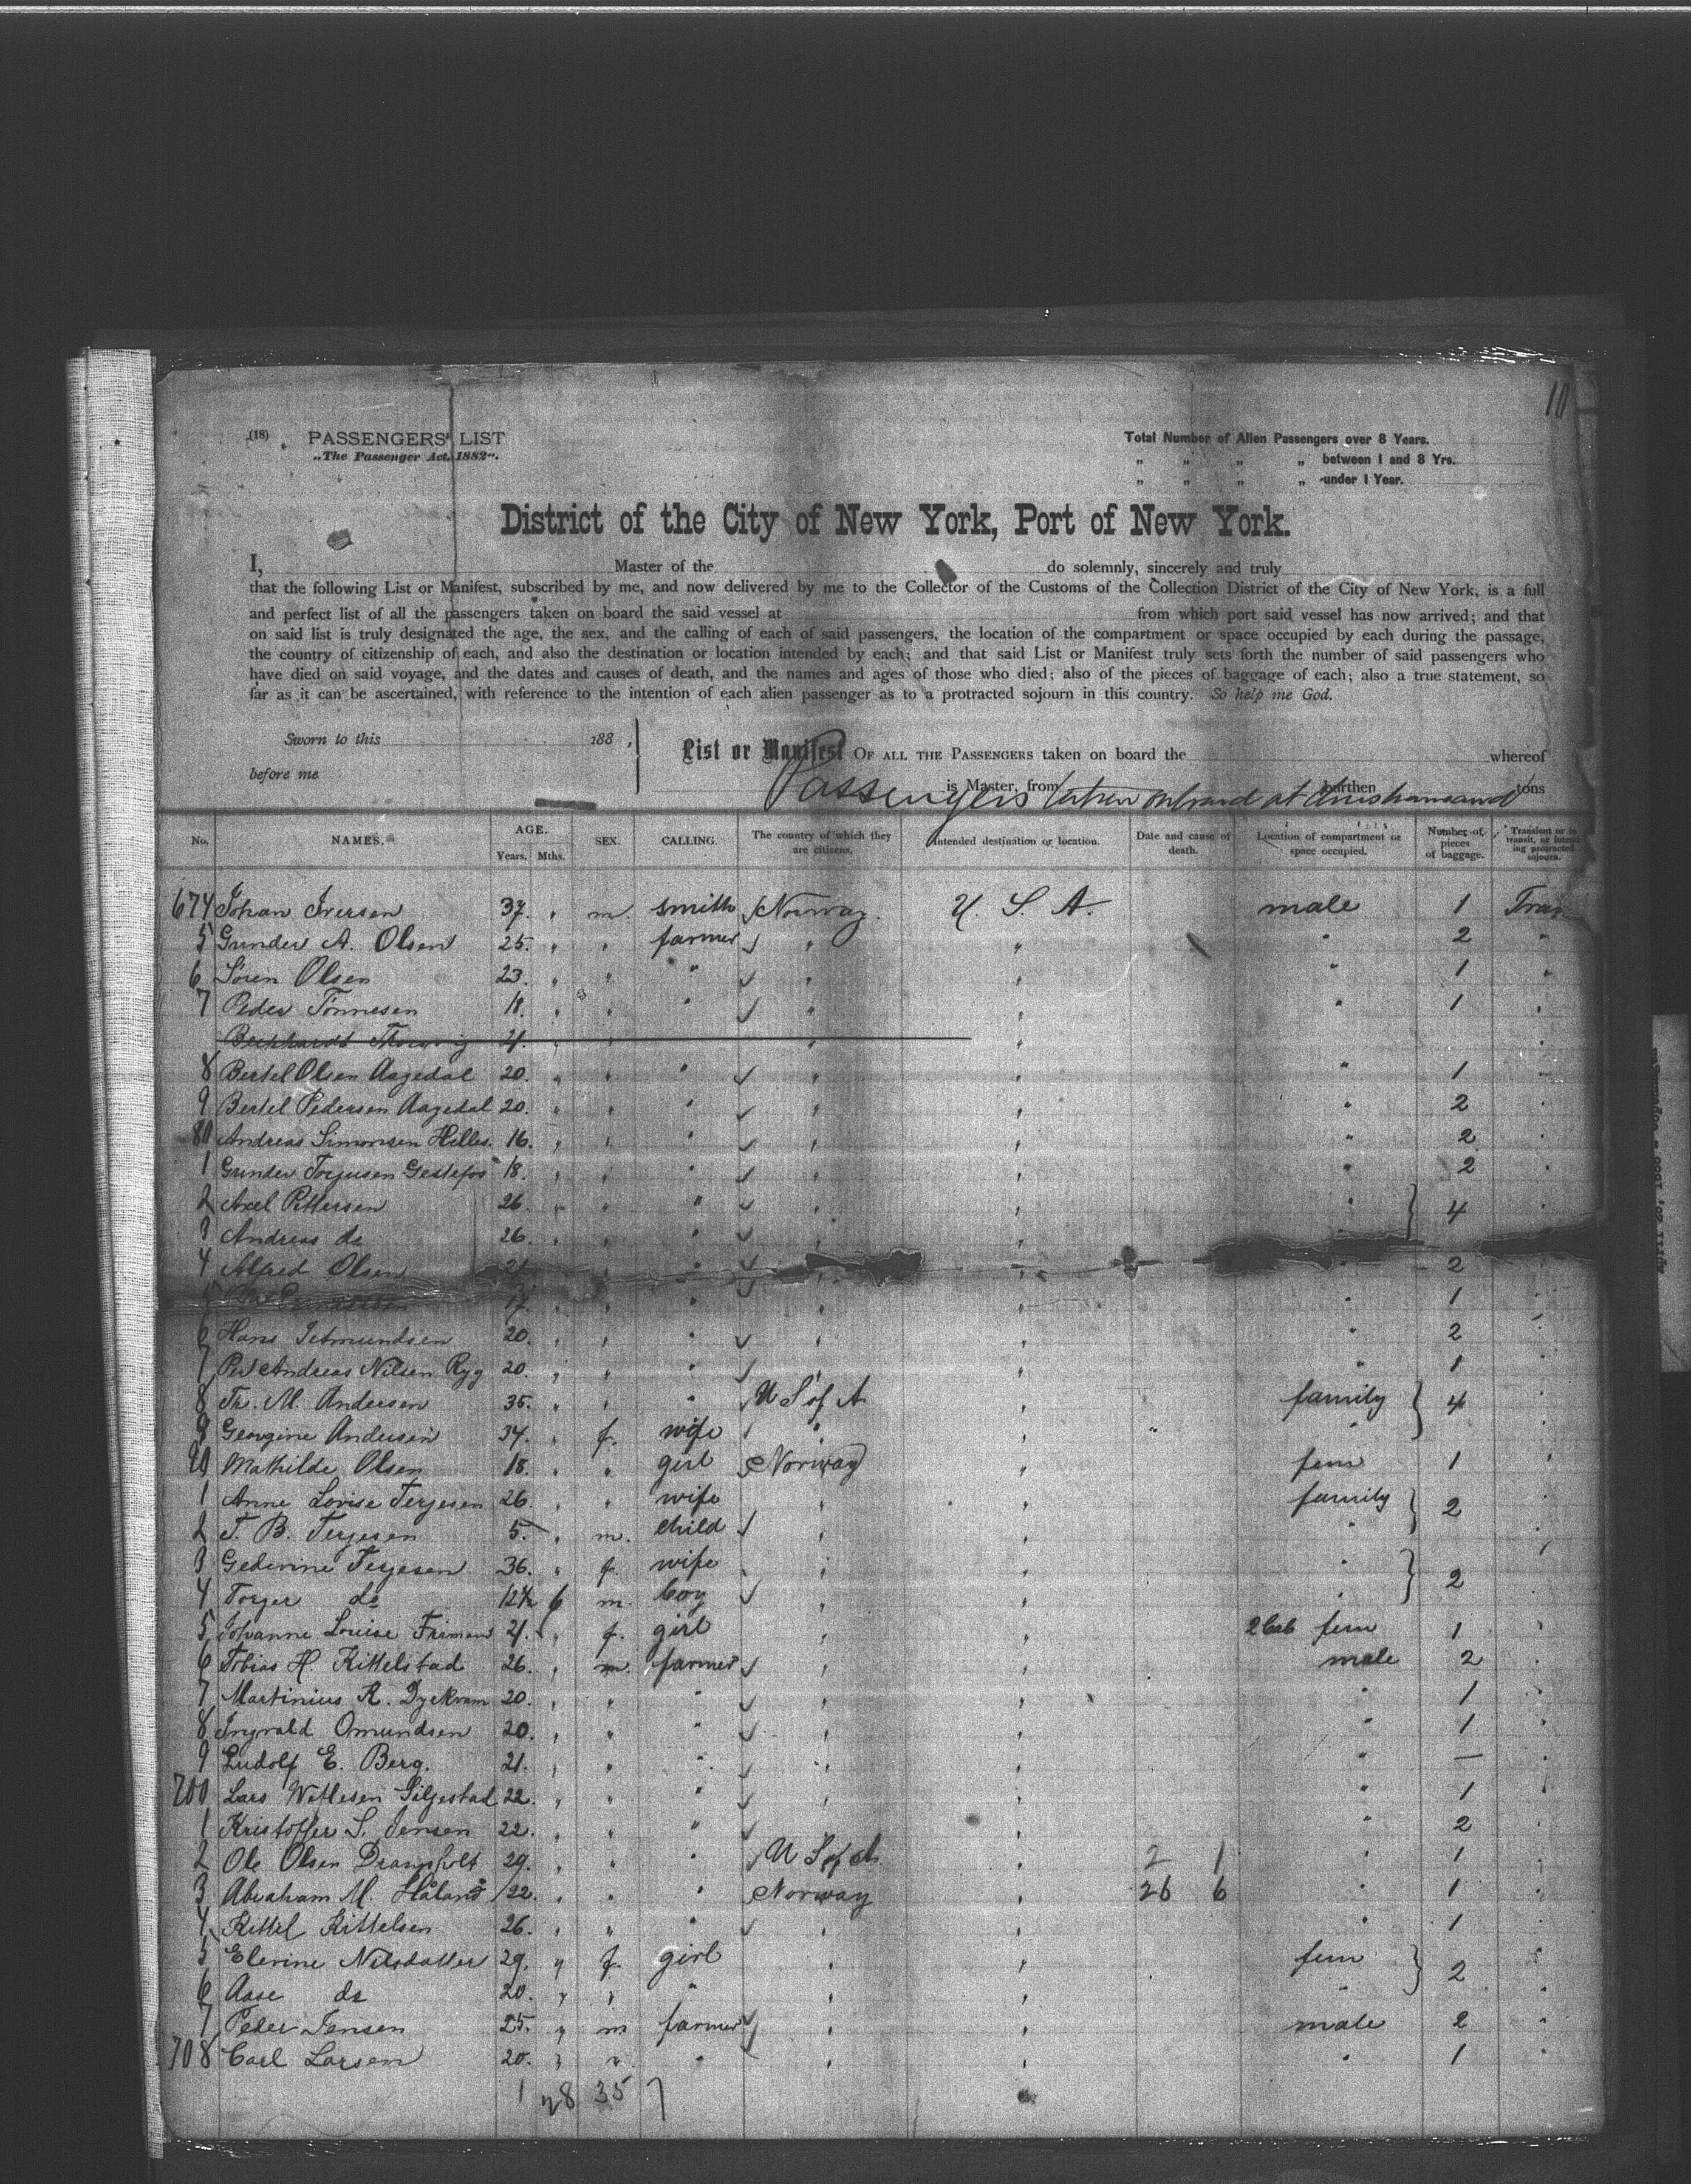 10
(18) PASSENGERS' LIST
„The Passenger Act, 1882“.
Total Number of Alien Passengers over 8 Years.
„ „ „ „ between 1 and 8 Yrs.
„ „ „ „ under 1 Year.
District of the City of New York, Port of New York.
I, Master of the do solemnly, sincerely and truly
that the following List or Manifest, subscribed by me, and now delivered by me to the Collector of the Customs of the Collection District of the City of New York, is a full
and perfect list of all the passengers taken on board the said vessel at from which port said vessel has now arrived; and that
on said list is truly designated the age, the sex, and the calling of each of said passengers, the location of the compartment or space occupied by each during the passage,
the country of citizenship of each, and also the destination or location intended by each; and that said List or Manifest truly sets forth the number of said passengers who
have died on said voyage, and the dates and causes of death, and the names and ages of those who died; also of the pieces of baggage of each; also a true statement, so
far as it can be ascertained, with reference to the intention of each alien passenger as to a protracted sojourn in this country. So help me God.
Sworn to this 188 ,
before me
List or Manifest OF ALL THE PASSENGERS taken on board the whereof
is Master, from burthen tons
Passengers taken onboard at Christiansand
No. NAMES. AGE. Years. Mths. SEX. CALLING. The country of which they are citizens. Intended destination or location. Date and cause of death. Location of compartment or space occupied. Number of pieces of baggage. Transient or in transit, or intending protracted sojourn.
674 Johan Iversen 37. „ m. smith Norway. U. S. A. male 1 Tran
5 Gunder A. Olsen 25. „ „ farmer „ „ „ 2 „
6 Sören Olsen 23. „ „ „ „ „ 1 „
7 Peder Tönnesen 18. „ „ „ „ „ „ 1 „
21. „ „ „ „
8 Bertel Olsen Aagedal 20. „ „ „ „ „ „ 1 „
9 Bertel Pedersen Aagedal 20. „ „ „ „ „ „ 2 „
80 Andreas Simonsen Hilles. 16. „ „ „ „ „ „ 2 „
1 Gunder Torjusen Gestefos 18. „ „ „ „ „ „ 2 „
2 Axel Pettersen 26 „ „ „ „ „ „ 4 „
3 Andreas do 26. „ „ „ „ „ „
4 Alfred Olsen 21 „ „ „ „ „ 2 „
5 17. „ „ „ „ „ „ 1 „
6 Hans Setmundsen 20. „ „ „ „ „ „ 2 „
7 Per Andreas Nilsen Ryg 20. „ „ „ „ „ „ 1 „
8 Th. M. Andersen 35. „ „ „ U S of A „ family 4 „
9 Georgine Andersen 34. „ f. wife „ „ „ „
90 Mathilde Olsen 18. „ „ girl Norway „ fem 1 „
1 Anne Lovise Terjesen 26. „ „ wife „ „ family 2 „
2 T. B. Terjesen 5. „ m. child „ „ „
3 Gederine Terjesen 36. „ f. wife „ „ „ 2 „
4 Torger do 12½ 6 m. boy „ „ „ „
5 Johanne Louise Friman 21. „ f. girl „ „ 2 Cab fem 1 „
6 Tobias H. Kittelstad 26. „ m. farmer „ „ male 2 „
7 Martinius R. Dyrkvam 20. „ „ „ „ „ „ 1 „
8 Ingvald Omundsen 20. „ „ „ „ „ „ 1 „
9 Ludolf E. Berg. 21. „ „ „ „ „ „ — „
700 Lars Wetlesen Siljestad 22. „ „ „ „ „ „ 1 „
1 Kristoffer S. Jensen 22. „ „ „ „ „ „ 2 „
2 Ole Olsen 29. „ „ „ U S of A. „ 2 1 „ 1 „
3 Abraham M. Håland 22. „ „ „ Norway „ 26 6 „ 1 „
4 Kittel Kittelsen 26. „ „ „ „ „ „ 1 „
5 Elevine Nilsdatter 29. „ f. girl „ „ fem 2 „
6 Aase do 20. „ „ „ „ „ „ „
7 Peder Jensen 25. „ m farmer „ „ male 2 „
708 Carl Larsen 20. „ „ „ „ „ „ 1 „
1 28 35 7